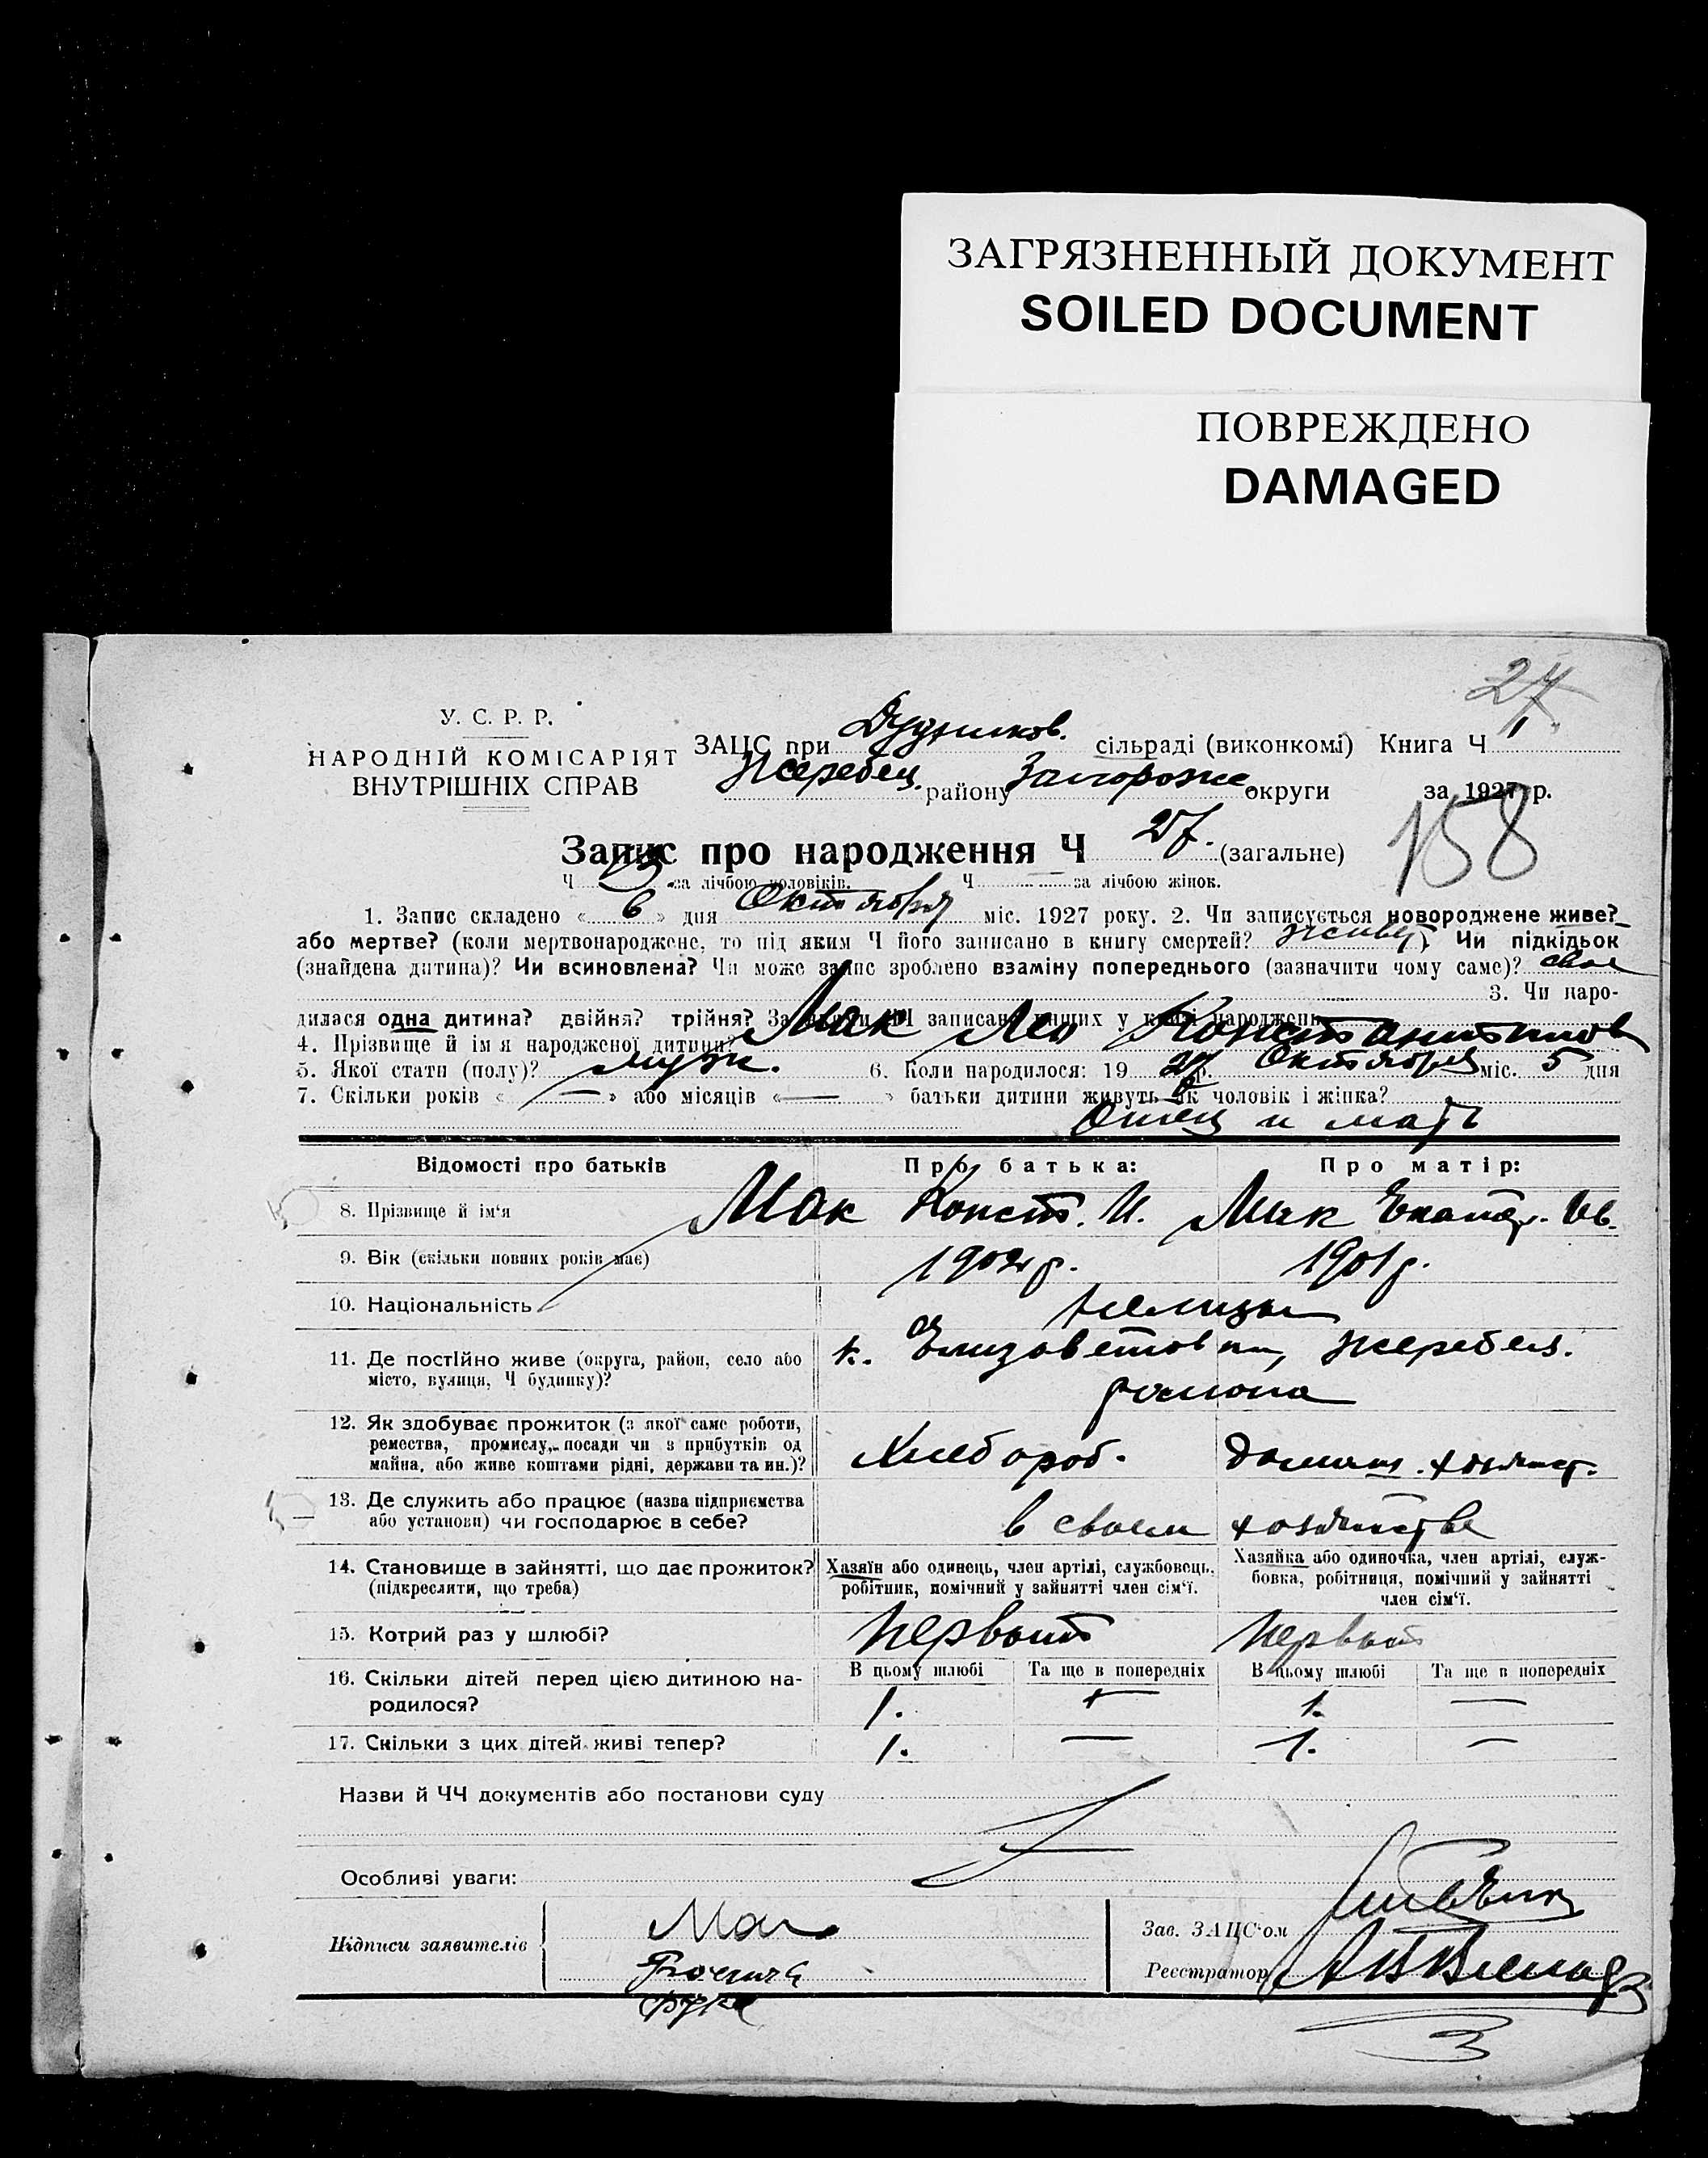 ЗАГРЯЗНЕННЫЙ ДОКУМЕНТ
SOILED DOCUMENT
ПОВРЕЖДЕНО
DAMAGED
27
У. С. Р. Р.
НАРОДНІЙ КОМІСАРІЯТ
ВНУТРІШНІХ СПРАВ
ЗАЦС при Дудников. сільраді (виконкомі) Книга Ч 1
Жеребец. району Запорожс округи за 1927 р.
158
Запис про народження Ч 27. (загальне)
Ч за лічбою чоловіків. Ч — за лічбою жінок.
1. Запис складено « 6 » дня Октября міс. 1927 року. 2. Чи записується новороджене живе?
або мертве? (коли мертвонароджене, то під яким Ч його записано в книгу смертей? живу) Чи підкідьок
(знайдена дитина)? Чи всиновлена? Чи може запис зроблено взаміну попереднього (зазначити чому саме)? свое
3. Чи наро-
дилася одна дитина? двійня? трійня? За якими ЧЧ записано инших у книзі народжень
4. Прізвище й ім'я народженої дитини? Мак Лео Константинов
5. Якої стати (полу)? муж. 6. Коли народилося: 19 27 р. Октября міс. 5 дня
7. Скільки років « — » або місяців « — » батьки дитини живуть як чоловік і жінка?
Отец и мать
Відомості про батьків Про батька: Про матір:
8. Прізвище й ім'я Мак Конст. И. Мак Екат. Ив.
9. Вік (скільки повних років має) 1902 р. 1901 р.
10. Національність Немцы
11. Де постійно живе (округа, район, село або місто, вулиця, Ч будинку)? к. Елизаветовка, Жеребец.
района
12. Як здобуває прожиток (з якої саме роботи,
ремества, промислу, посади чи з прибутків од
майна, або живе коштами рідні, держави та ин.)? Хлебороб. Домашн. хозяйст.
13. Де служить або працює (назва підприємства
або установи) чи господарює в себе? в своем хозяйстве
14. Становище в зайнятті, що дає прожиток?
(підкреслити, що треба)
Хазяїн або одинець, член артілі, службовець,
робітник, помічний у зайнятті член сім'ї.
Хазяйка або одиночка, член артілі, служ-
бовка, робітниця, помічний у зайнятті
член сім'ї.
15. Котрий раз у шлюбі? Первый Первый
16. Скільки дітей перед цією дитиною на-
родилося?
В цьому шлюбі Та ще в попередніх В цьому шлюбі Та ще в попередніх
1. — 1. —
17. Скільки з цих дітей живі тепер? 1. — 1. —
Назви й ЧЧ документів або постанови суду
Особливі уваги:
Підписи заявителів Мак
Зав. ЗАЦС'ом
Реєстратор